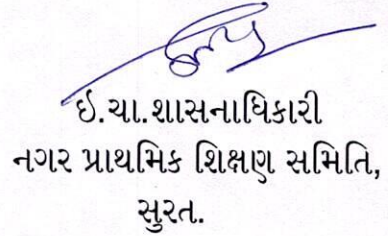 ઇ.ચા.શાસનાધિકારી
નગર પ્રાથમિક શિક્ષણ સમિતિ,
સુરત.